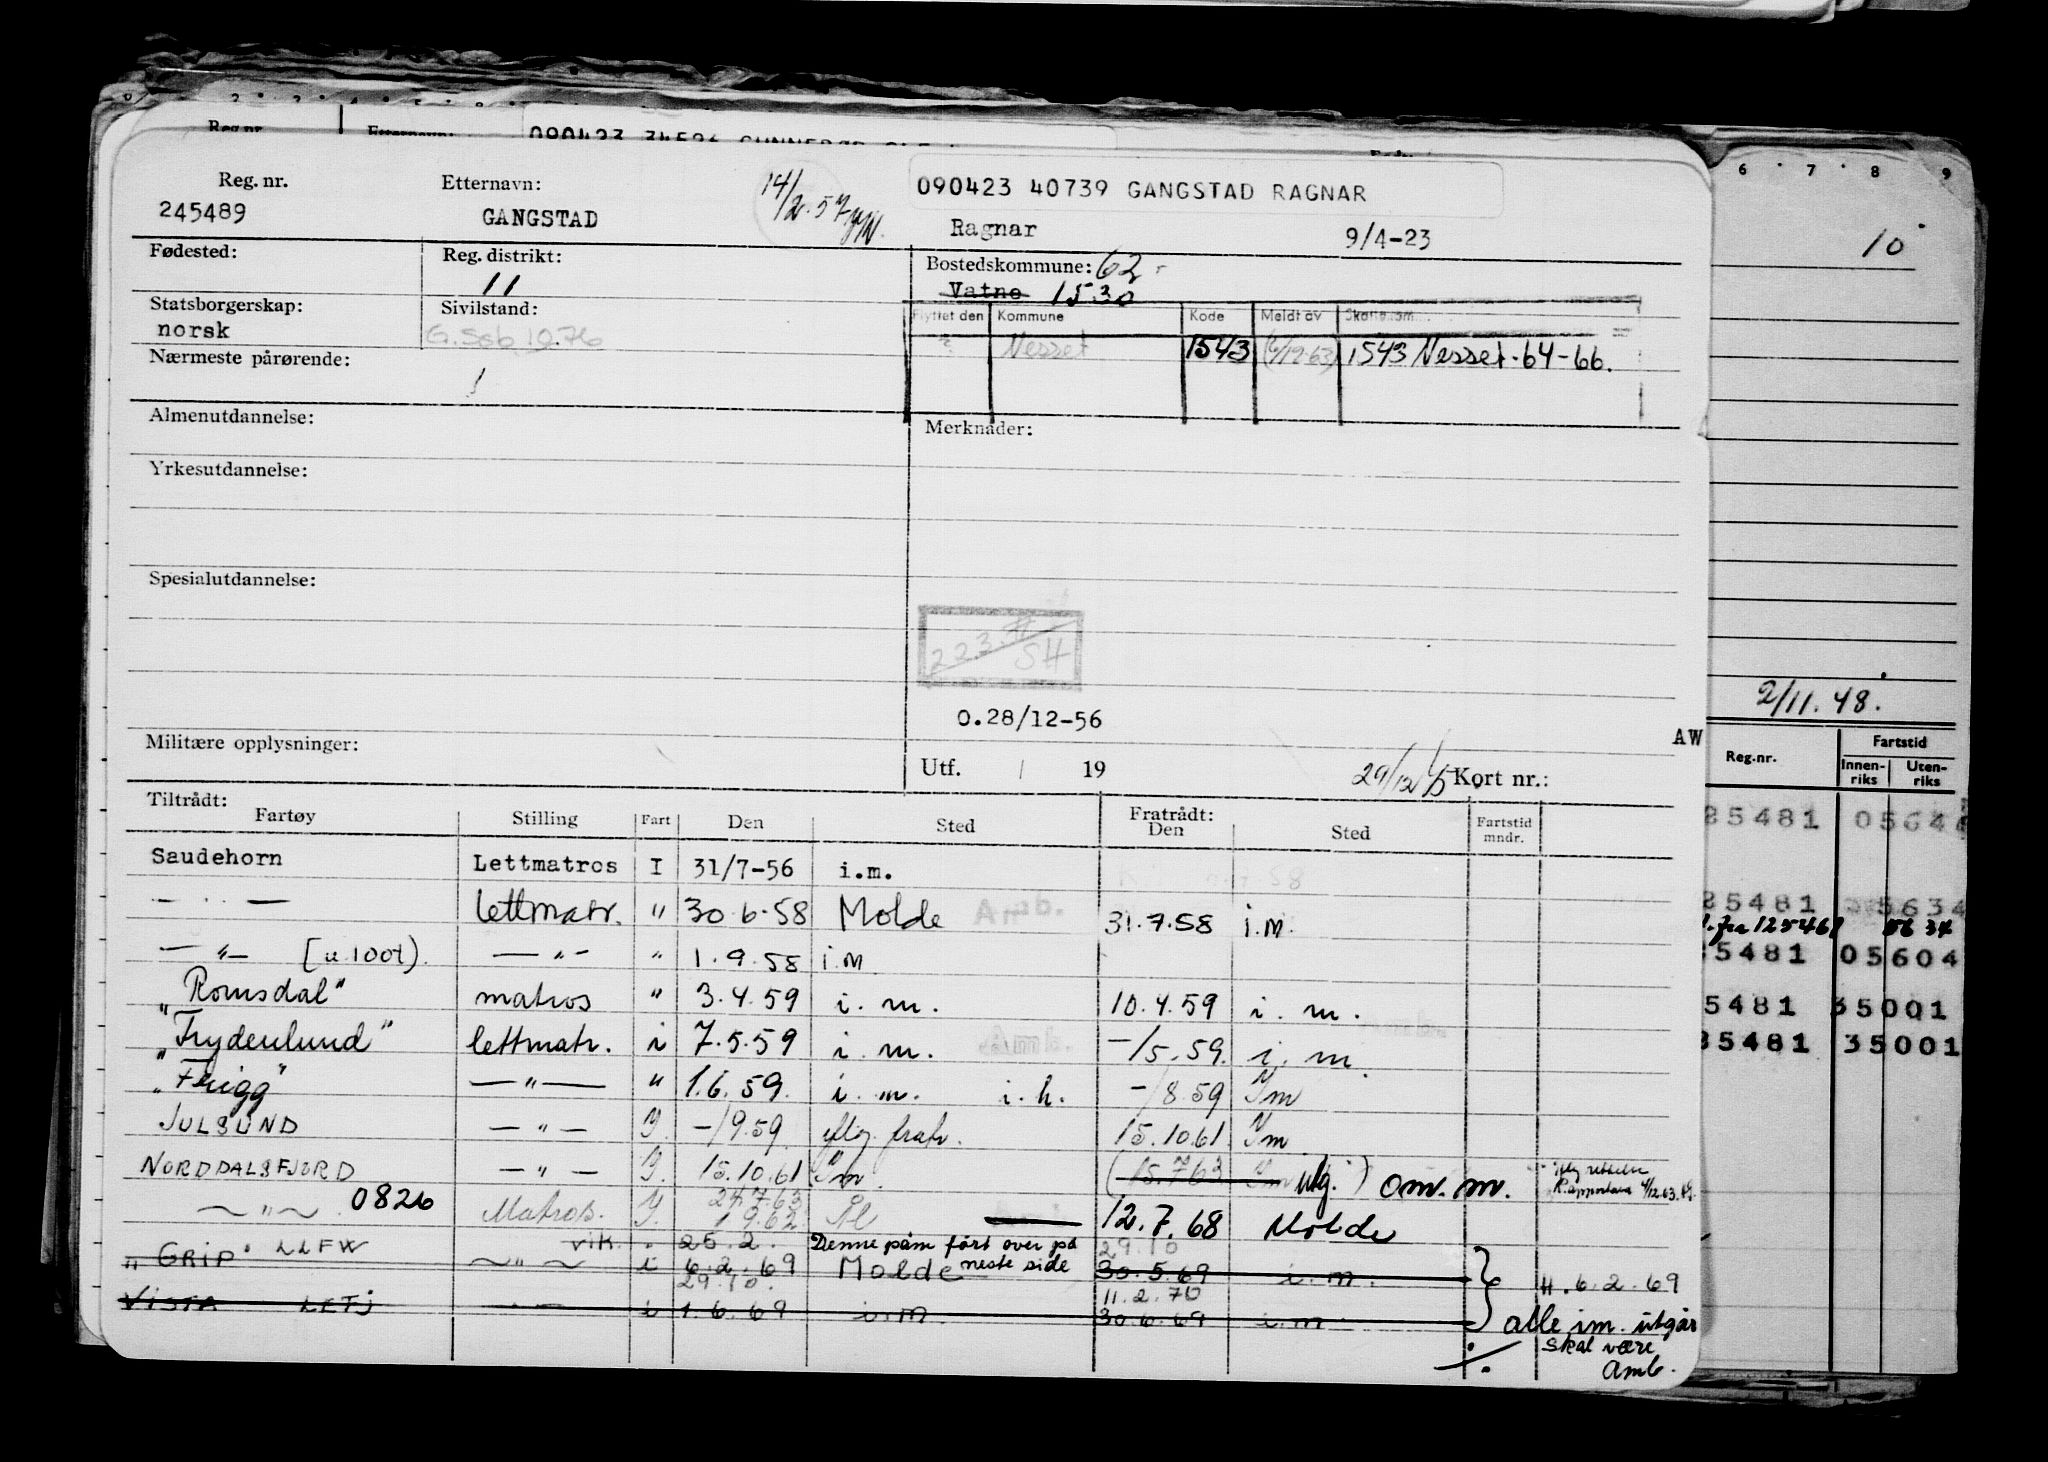 Reg. nr. Etternavn: 14/2.57 090423 40739 GANGSTAD RAGNAR
245489 GANGSTAD Ragnar 9/4-23
Fødested: Reg. distrikt: Bostedskommune: 62
11 Vatne 1530
Statsborgerskap: Sivilstand: Flyttet den Kommune Kode Meldt av
norsk
Nærmeste pårørende: ? Nesset 1543 1543 Nesset-64-66.
Almenutdannelse: Merknader:
Yrkesutdannelse:
Spesialutdannelse:
223 SH
0.28/12-56
AW
Militære opplysninger:
Utf. / 19 29/12 Kort nr.:
Tiltrådt: Fratrådt:
Fartøy Stilling Fart Den Sted Den Sted Fartstid mndr.
Saudehorn Lettmatros I 31/7-56 i.m.
— " — lettmatr. " 30.6.58 Molde 31.7.58 i.m.
— " — — " — " 1.9.58 i.m
"Romsdal" matros " 3.4.59 i. m. 10.4.59 i. m.
"Frydenlund" lettmatr. i 7.5.59 i. m. —/5.59. i. m.
"Frigg" — " — " 1.6.59. i. m. i. h. —/8.59 Im
JULSUND — " — I —/9.59 flg. fratr. 15.10.61 Im
NORDDALSFJORD — " — I 15.10.61 Im. (15.7.63 Im utg.) om. m.
— " — 0826 Matros. I. 24.7.63 1.9.62 Ål 12.7.68 Molde
vik. 25.2. Denne påm ført over på neste side 29.10
"GRIP" LLFW — " — i 6.2.69 Molde 30.5.69 i.m. H.6.2.69
29.10. 11.2.70
VISTA LETJ — " — i 1.6.69 i.m. 30.6.69 i.m alle im. utgår
skal være
Amb.
6 7 8 9
10
2/11.48.
Reg.nr. Fartstid
Innen-riks Uten-riks
25481 0564
25481 5634
5481 05604
5481 35001
35481 35001